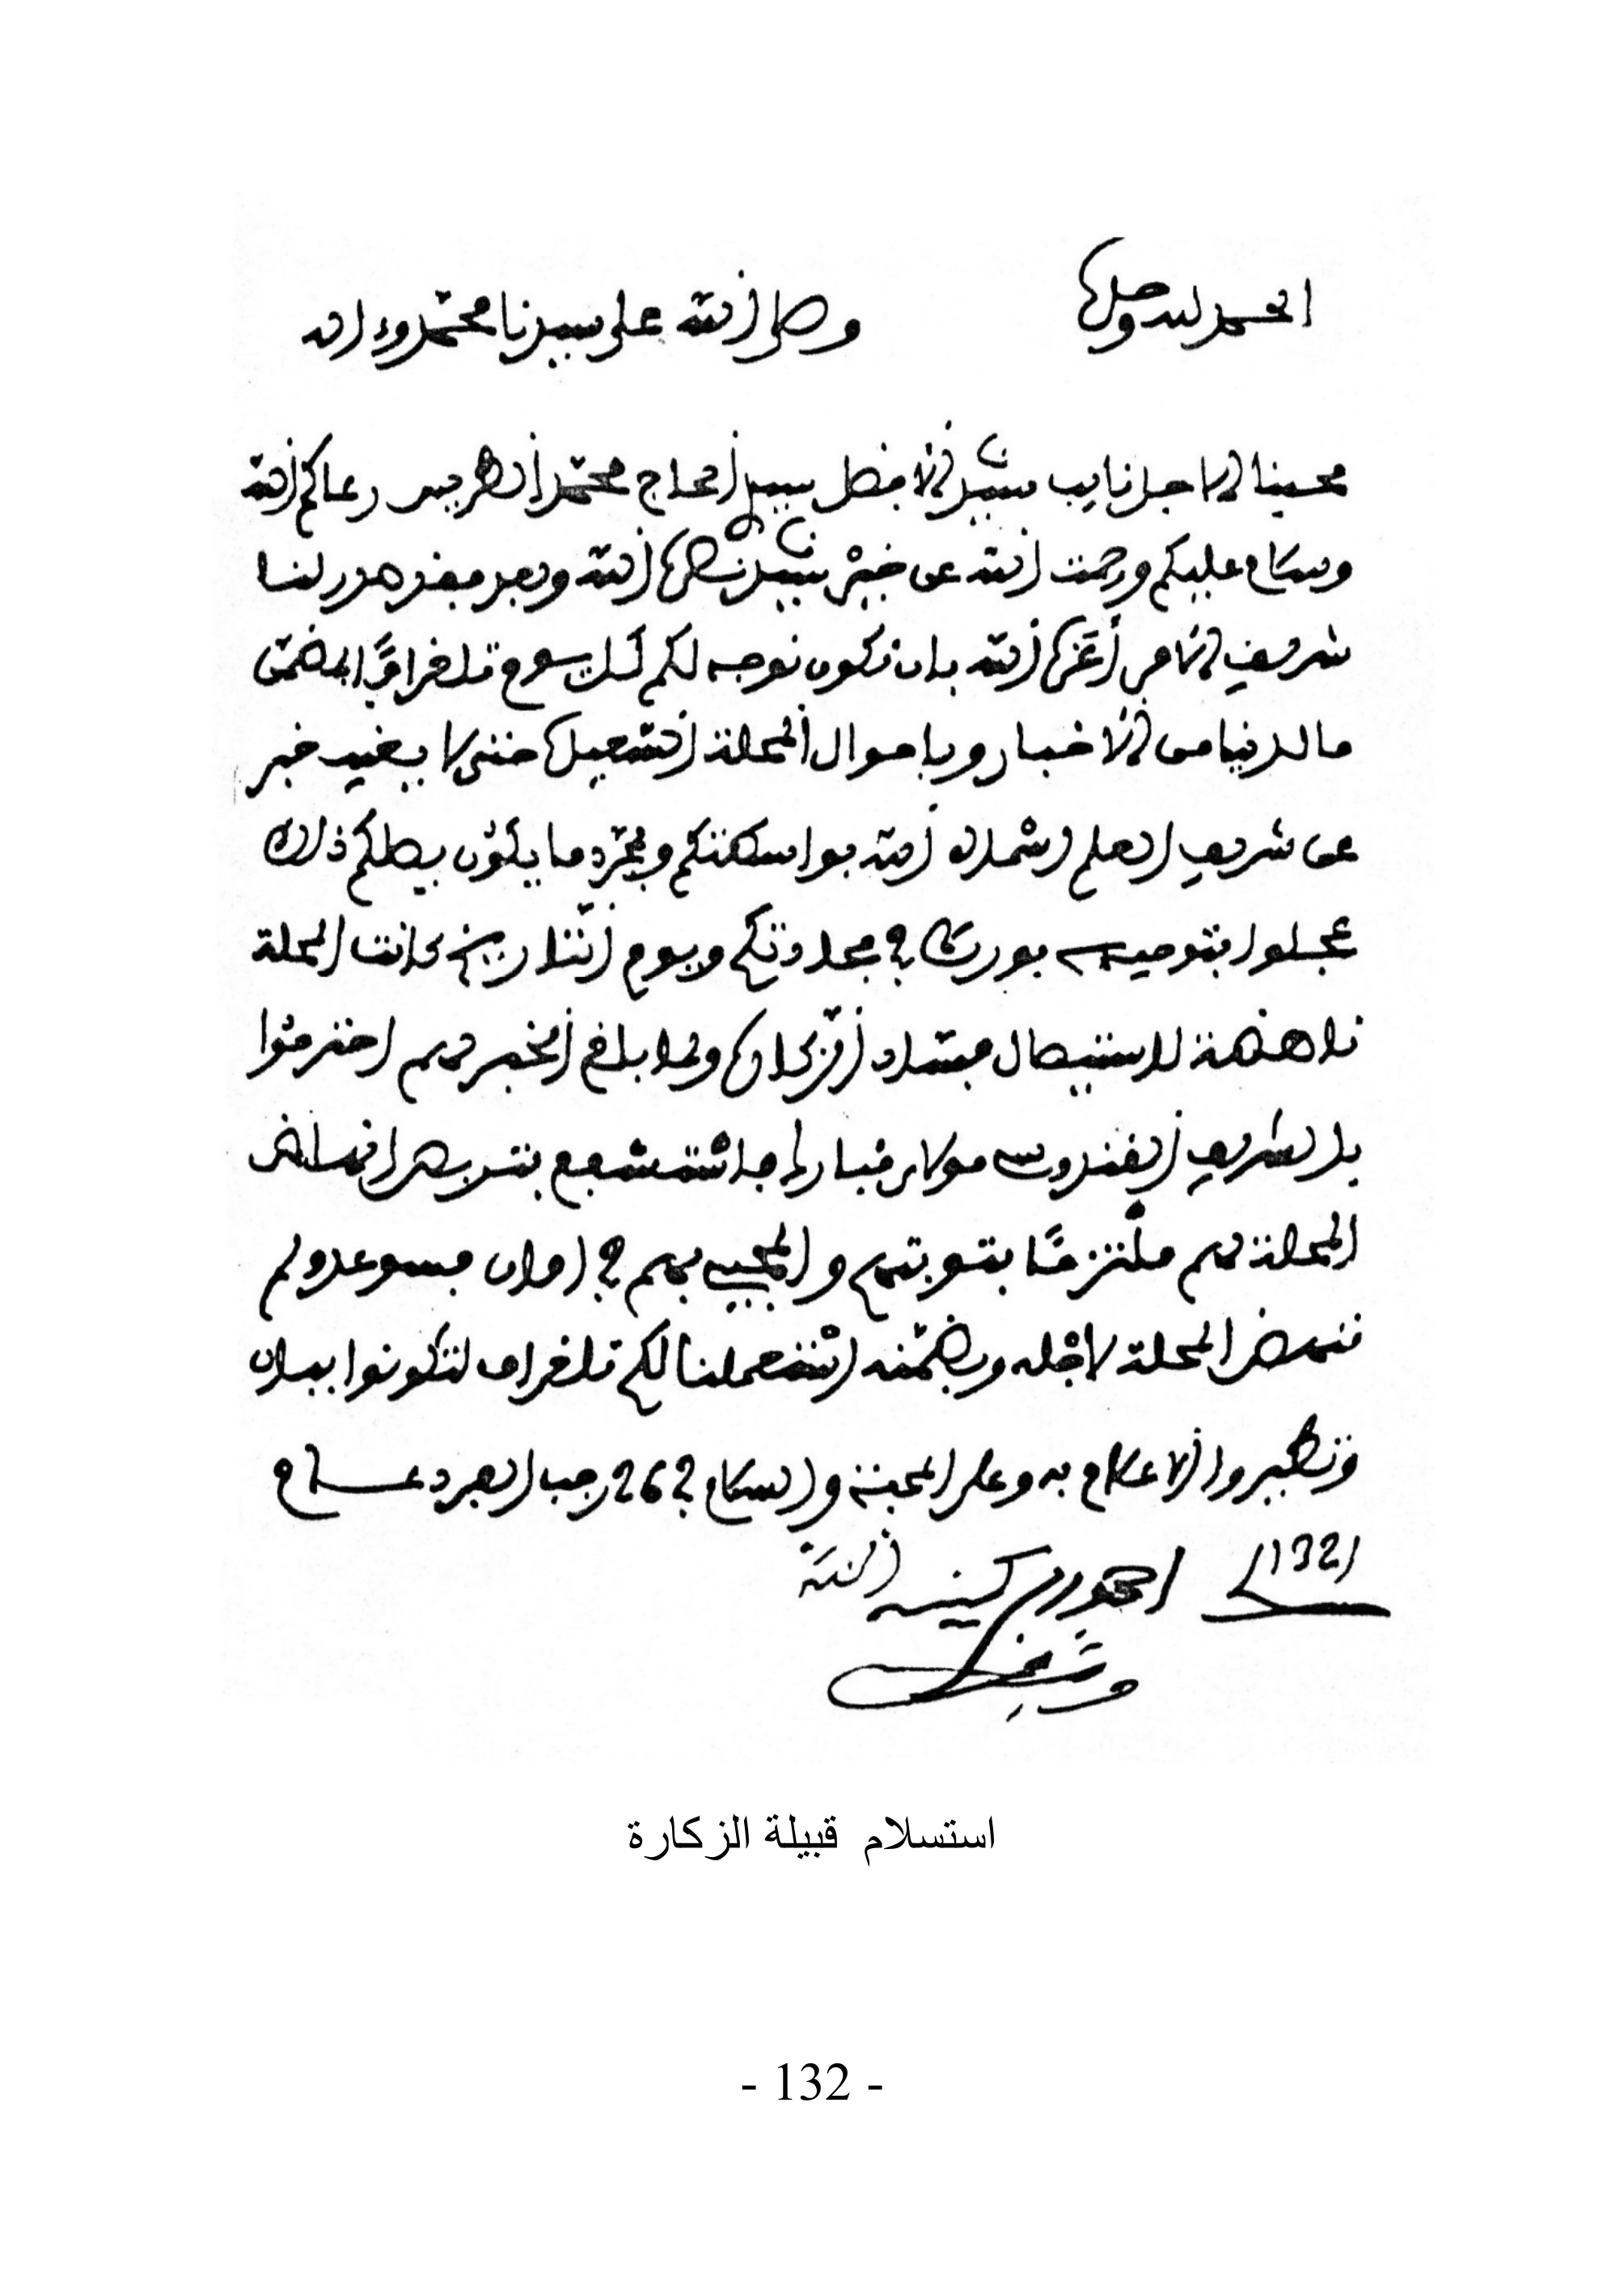 الحمد لله وحده
وصلى الله على سيدنا محمد وءاله
محبنا الاجل نايب سيدنا الافضل سيد الحاج محمد رعاكم الله
وسلام عليكم ورحمت الله عن خير سيدنا نصره الله وبعد فقد صدر لنا
شريف الامر أعزه الله بان نكون نوجه لكم تلغرافا
ما لدينا من الاخبار وباحوال المحلة السعيدة حتى لا يغيب خبر
عن شريف العلم اسماه الله بواسطتكم وبمجرد ما يكون يصلكم ذلك
عجلوا بتوجيهه بورك في مجادتكم ويوم التاريخ كانت المحلة
ناهضة لاستيصال فساد الزكارة ولما بلغ الخبر لهم احترموا
بالشريف مولاي جاء يتشفع
المحلة لهم ملتزما بتوبتهم والمجيء بهم في اوان
تنهض المحلة لاجله استعملنا لكم تلغراف لتكونوا ببال
وتطيروا الاعلام به وعلى المحبة والسلام في 26 رجب الفرد عام
1321
احمد الله
استسلام قبيلة الزكارة
- 132 -